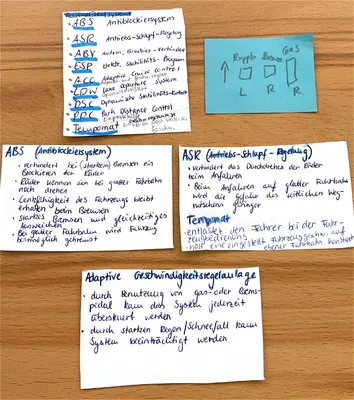 ABS Antiblockiersystem
ASR Antriebs-Schlupf-Regelung
ABV Autom. Blockier-Verhinder
ESP Elektr. Stabilitäts-Program
ACC Adaptive Cruise Control
LDW lane departure system
DSC Dynamische Stabilitäts-Control
PDC Park Distance Control
Tempomat
Kuppl. Bremse Gas
L R R
ABS (Antiblockiersystem)
• verhindert bei (starkem) Bremsen ein
Blockieren der Räder
• Räder können sich bei glatter Fahrbahn
noch drehen
• Lenkfähigkeit des Fahrzeugs bleibt
erhalten beim Bremsen
• starkes Bremsen und gleichzeitiges
Ausweichen
• Bei glatter Fahrbahn wird Fahrzeug
bestmöglich gebremst
ASR (Antriebs-Schlupf-Regelung)
• verhindert das Durchdrehen der Räder
beim Anfahren
• Beim Anfahren auf glatter Fahrbahn
wird die Gefahr des seitlichen Weg-
rutschens geringer
Tempomat
-entlastet den Fahrer bei der Fahr-
zeugbedienung
-hält eine eingestellt Fahrzeuggeschw. auf
ebener Fahrbahn konstant
Adaptive Geschwindigkeitsregelanlage
• durch Benutzung von gas- oder Brems-
pedal kann das System jederzeit
übersteuert werden
• durch starken Regen/Schneefall kann
System beeinträchtigt werden